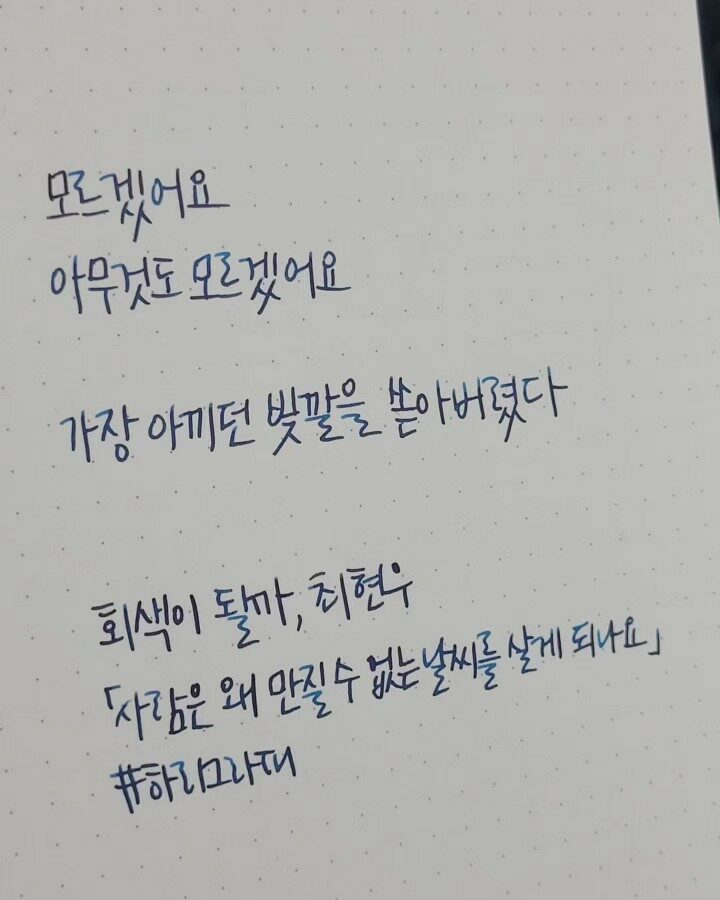 모르겠어요
아무것도 모르겠어요
가장 아끼던 빛깔을 쏟아버렸다
회색이 될까, 최현우
「사람은 왜 만질 수 없는 날씨를 살게 되나요」
#하리그라떼